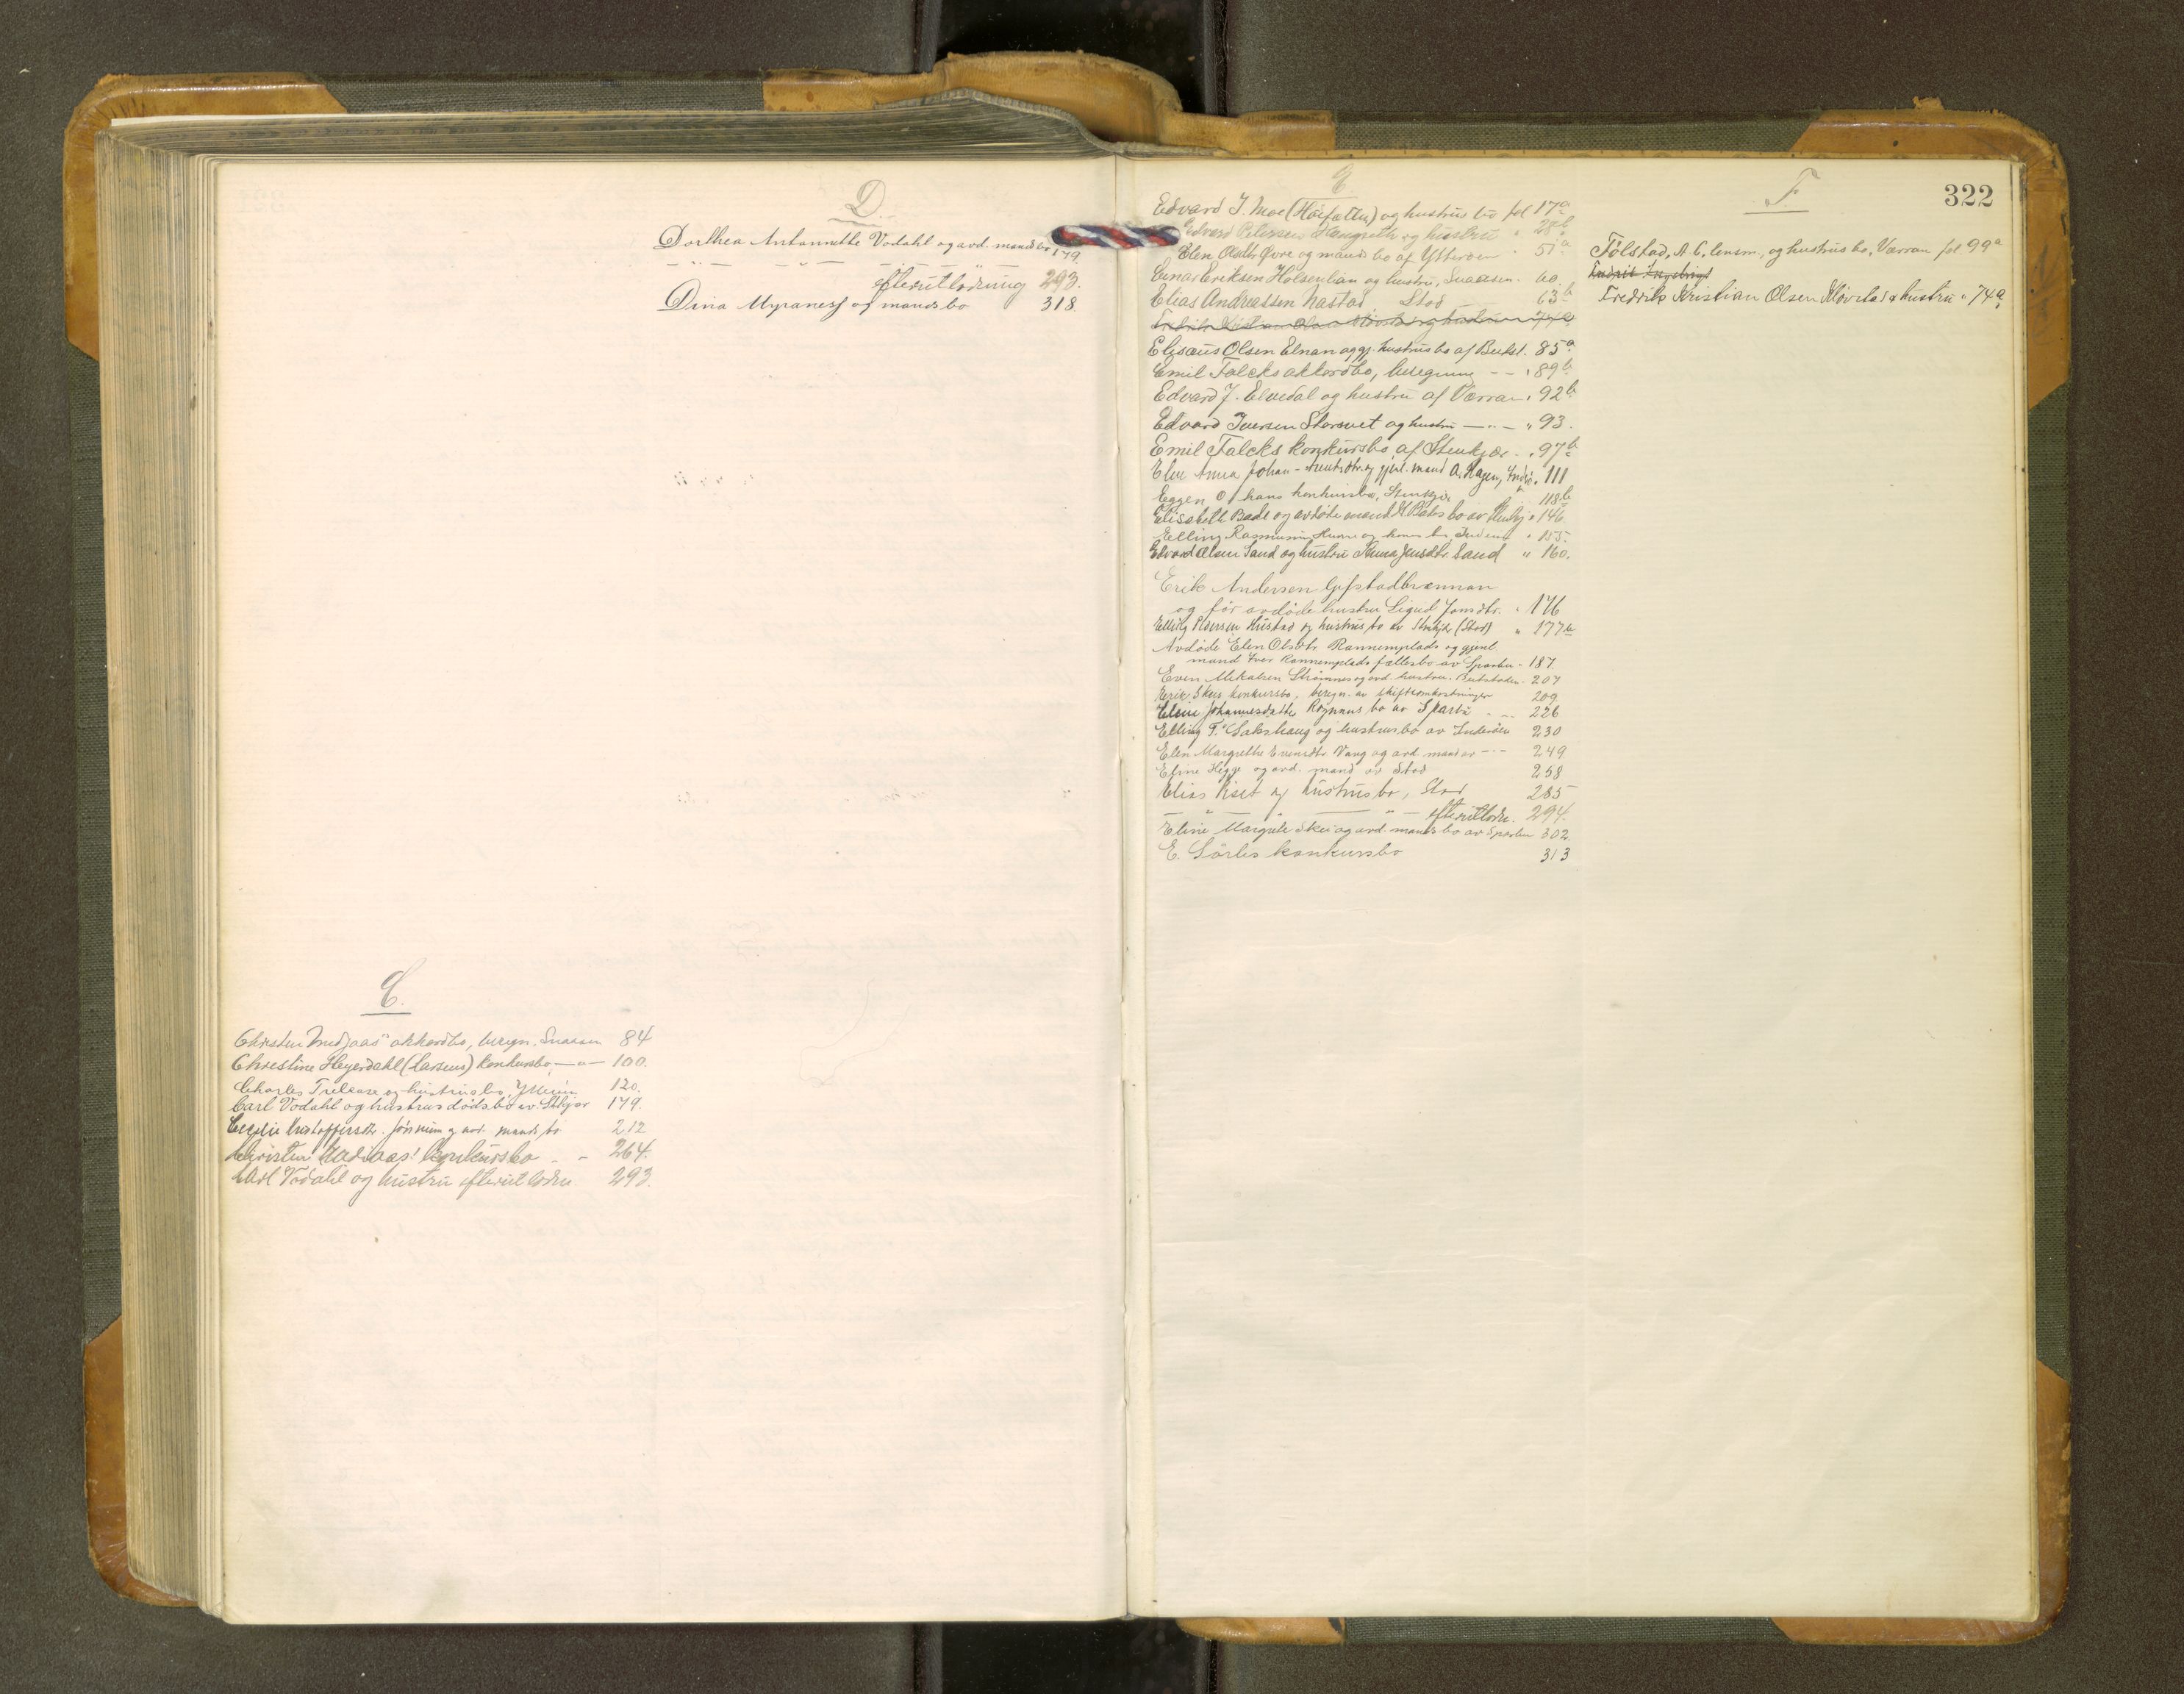 D.
Dorthea Antonette Vodahl og avd. mands bo 179.
— " — — " — — "
efterutlodning 293.
Dina Myraness og mands bo 318.
C.
Christen Medjaas' akkordbo, beregn. Snaasen 84
Christine Heyerdahl (Larsens) konkursbo — " — 100.
Charles Trelease og hustrus bo, Ytterøen 120.
Carl Vodahl og hustrus dødsbo av Stkjær 179.
Kristoffersdtr. og avd. mands bo 212
Christen Medjaas' Konkursbo - - 264.
Carl Vodahl og hustru efterutlodn. 293.
E
Edvard J. Moe (Høifætten) og hustrus bo fol 17a
Edvard Petersen og hustru " 28b
Elen Olsdtr. Øvre og mands bo af Ytterøen " 51a
Einar Eriksen Holsenlian og hustru, Snaasen - 60.
Elias Andreassen Nastad, Stod — " 63b
Elisæus Olsen Elnan og gj. hustrus bo af Beitst. 85a
Emil Falcks akkordbo, beregning - - " 89b
Edvard J. Elvedal og hustru af Værran " 92b
Edvard Iversen Storsvet og hustru — " — " 93.
Emil Falcks konkursbo, af Stenkjær - " 97b
Anna Johan - og gjenl. mand A. Hagen, Indr. " 111
Eggen O, hans konkursbo, Stenkjær 118b
Elisabeth Bade og avdøde mand H. Bades bo av Stenkj " 146
Elling Rasmussen og kones bo, " 155.
Edvard Olsen Sand og hustru Anna Jensdtr. Sand " 160.
Erik Andersen Gifstadbrænnan
og før avdøde hustru Sigrid Jonsdtr. " 176
Elling Pedersen Hustad og hustrus bo av Stenkjær (Stod) " 177b
Avdøde Elen Olsdtr. Rannemplads og gjenl.
mand Iver Rannemplads fællesbo av Sparbu - 187.
Even Mikalsen Strømnes og avd. hustru. Beitstaden - 207
Erik Skeis konkursbo, beregn. av skifteomkostninger 209
Eline Johannesdatter bo av Sparbu - - 226
Elling F. Sakshaug og hustrus bo av Inderøen 230
Elen Margrethe Evensdtr. Vang og avd. mand av - " - 249
Eline Hegge og avd. mand av Stod 258
Elias Kset og hustrus bo, Stod 285
— " — " — " — efterutlodn. 294.
Eline Margrete Skei og avd. mands bo av Sparbu 302.
E. Sørlis konkursbo 313
F
322
Følstad, A. C. lensm., og hustrus bo, Værran fol 99a
Fredrik Kristian Olsen Kløvstad & hustru " 74a